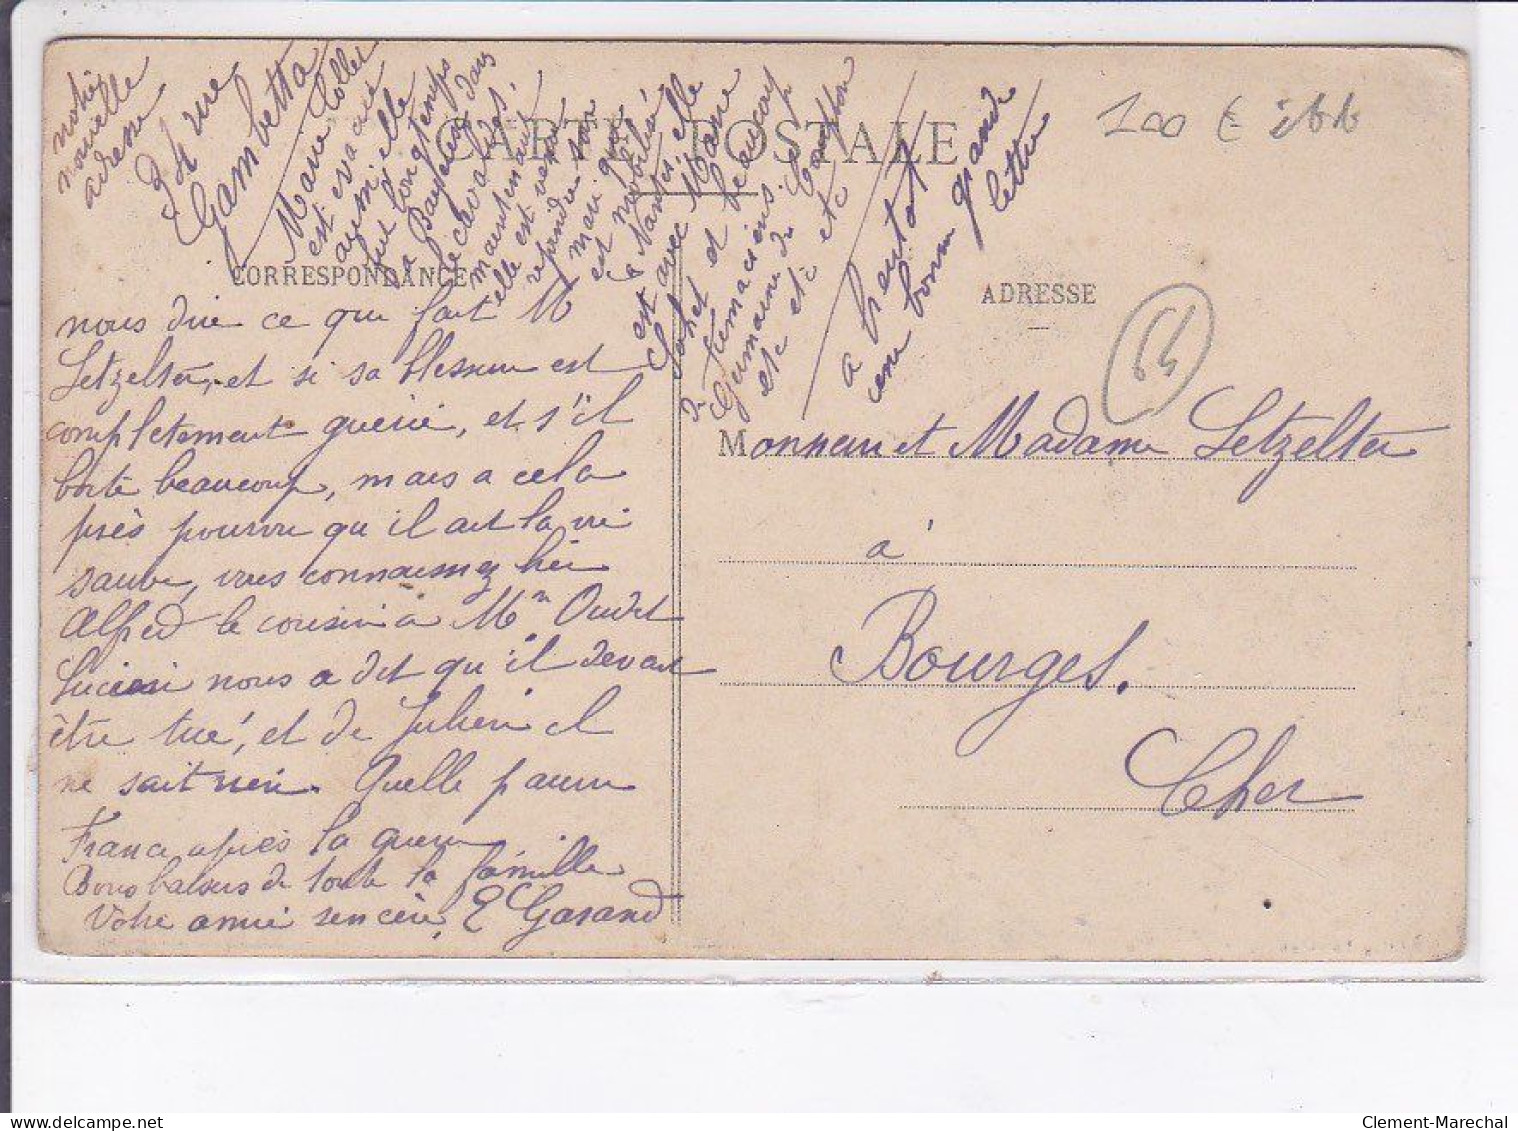 notre
nouvelle
adresse
34 rue
Gambetta
Marie Collet
est evacué
aussi elle
fut longtemps
a Bayeux dans
le clavados.
maintenant
elle est venu
rejoindre son
mari qui
est mobilisé
a Nantes, elle
est avec Mame
Sohet et beaucoup
de Fumaciens. Se
Germaine du Compon
etc etc etc
etc
a bientot
une bonne grande
lettre
CARTE POSTALE
100 €
64
CORRESPONDANCE
ADRESSE
nous dire ce que fait M
Letzelter, et si sa blessure est
completement guérie, et s'il
boite beaucoup, mais a cela
près pourvu qu'il ait la vie
sauve, vous connaissez bien
Alfred le cousin a Mme Oudet
Lucien nous a dit qu'il devait
être tué, et de Julien il
ne sait rien. Quelle pauvre
France après la guerre
Bons baisers de toute la famille
Votre amie sencère, E Garand
Monsieur et Madame Letzelter
à
Bourges.
Cher
Clement-Marechal
www.delcampe.net